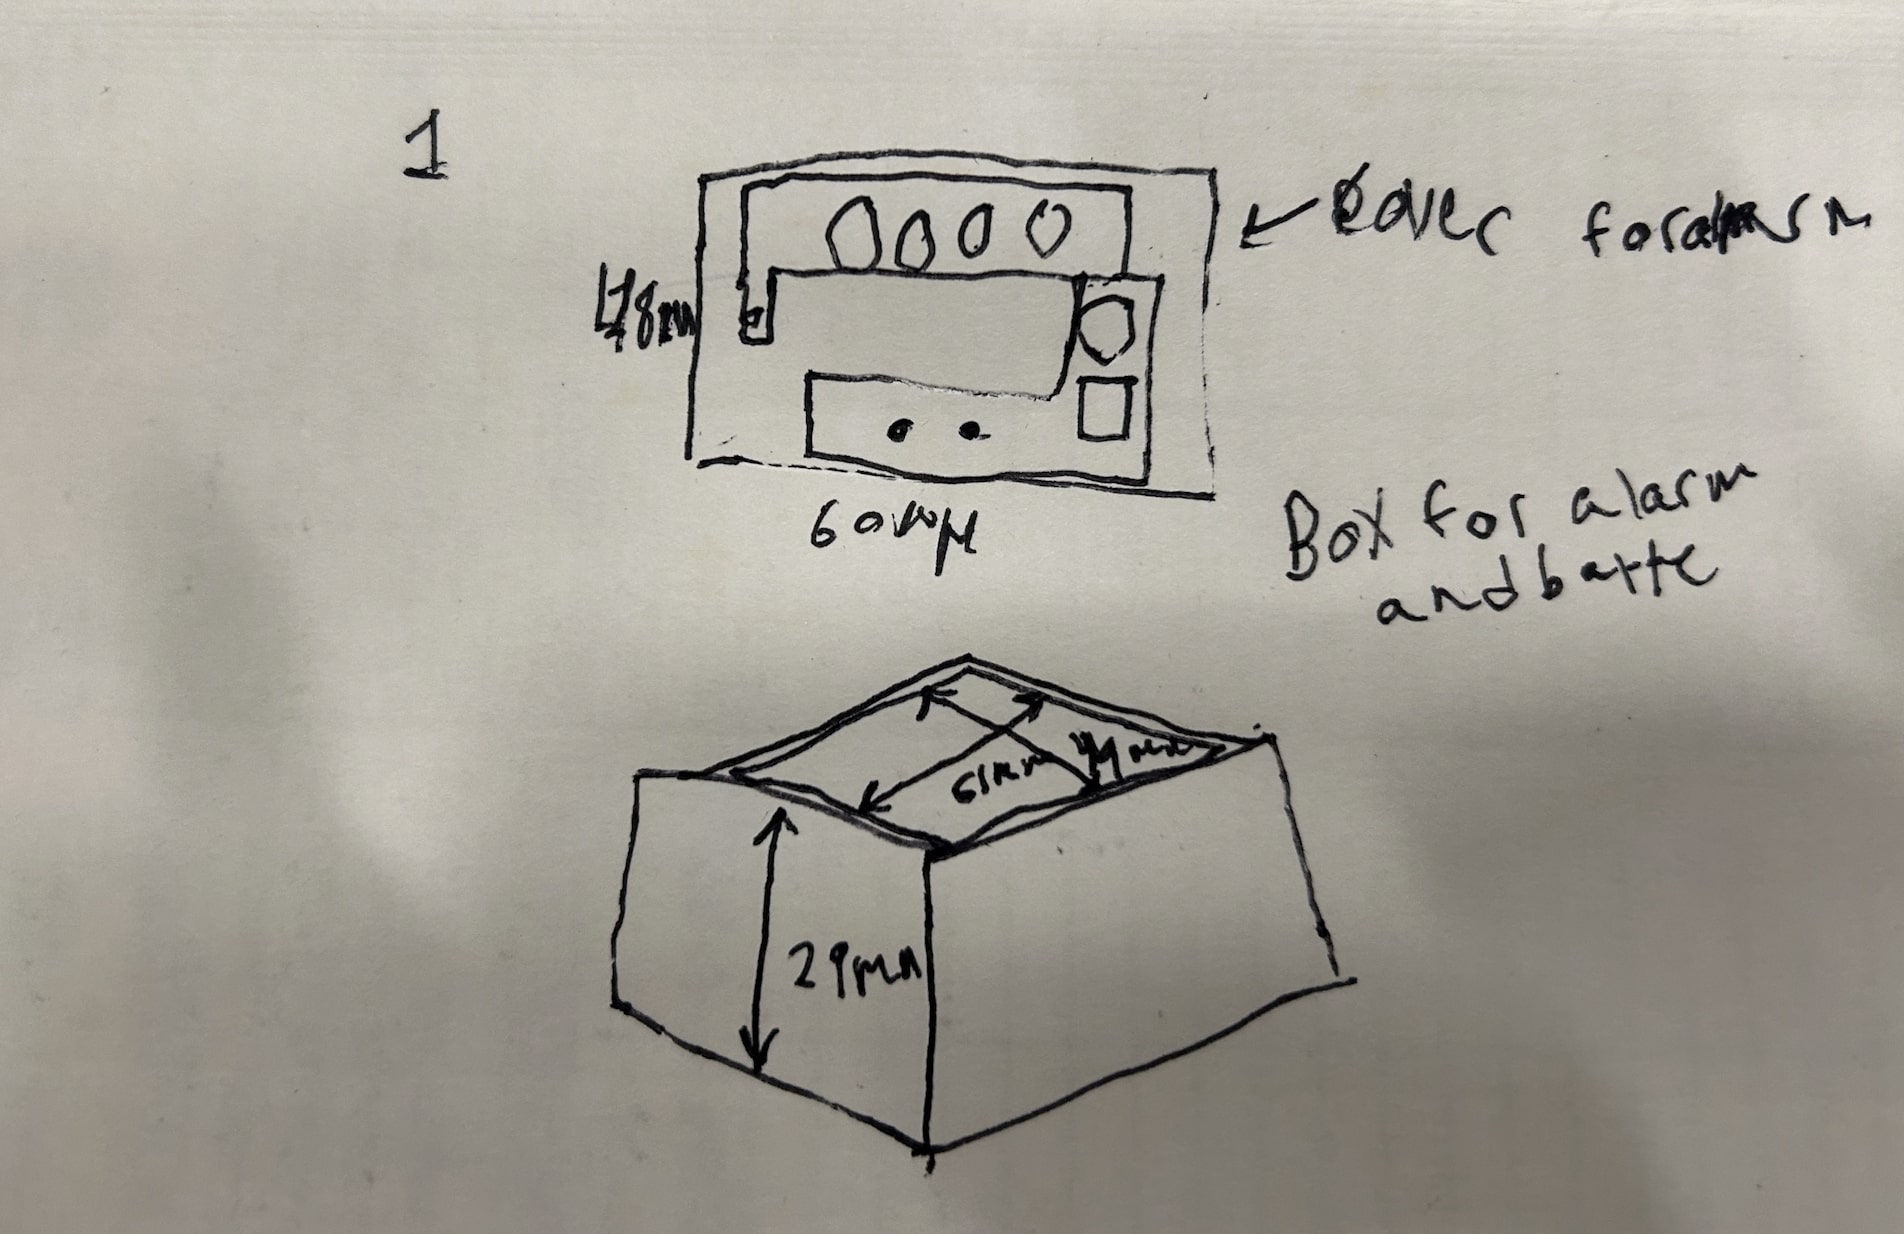 1
Cover for alarm
48mm
60mm
Box for alarm
and batte
51mm 44mm
29mm